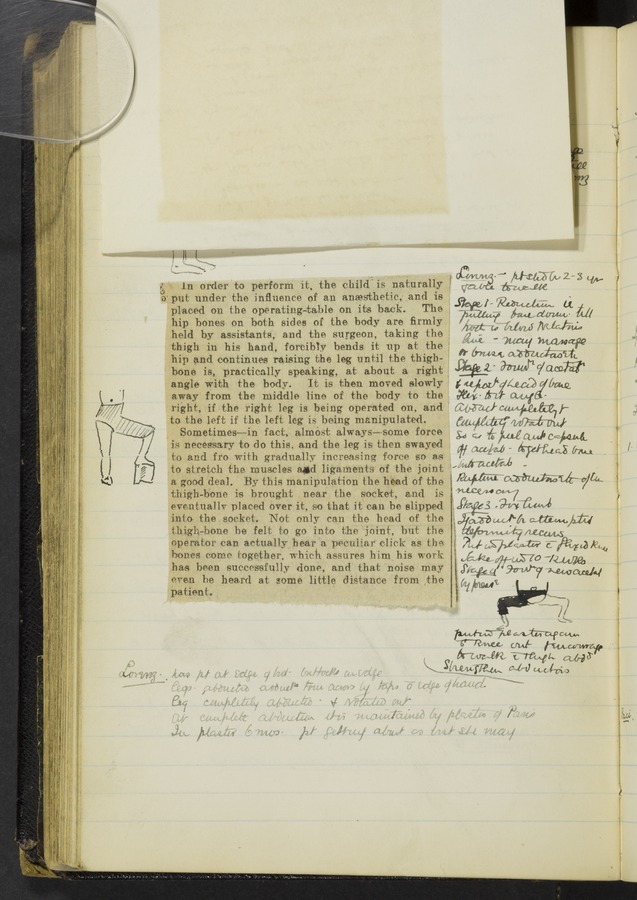 In order to perform it, the child is naturally
put under the influence of an anæsthetic, and is
placed on the operating-table on its back. The
hip bones on both sides of the body are firmly
held by assistants, and the surgeon, taking the
thigh in his hand, forcibly bends it up at the
hip and continues raising the leg until the thigh-
bone is, practically speaking, at about a right
angle with the body. It is then moved slowly
away from the middle line of the body to the
right, if the right leg is being operated on, and
to the left if the left leg is being manipulated.
Sometimes—in fact, almost always—some force
is necessary to do this, and the leg is then swayed
to and fro with gradually increasing force so as
to stretch the muscles and ligaments of the joint
a good deal. By this manipulation the head of the
thigh-bone is brought near the socket, and is
eventually placed over it, so that it can be slipped
into the socket. Not only can the head of the
thigh-bone be felt to go into the joint, but the
operator can actually hear a peculiar click as the
bones come together, which assures him his work
has been successfully done, and that noise may
even be heard at some little distance from the
patient.
Lorenz - pt shd be 2-3 yr
& able to walk
Stage 1 - Reduction ie
pulling bone down till
is below
line - may massage
or bruise adductors
Stage 2
of head of bone
Flex to rt angle
Abduct completely &
completely rotate out
So as to peel ant capsule
off acetab - to get head bone
into acetab -
Rupture adductors often
necessary
Stage 3 - Fix limb
If adduct be attempted
deformity recurs
Put in plaster c flexed knee
Take off in 10-12 wks
Stage 4 Form of new acetab
by press
put in plaster again
c Knee out & encourage
to walk c thigh abd
Strengthen abductors
Lorenz. has pt at edge of bed. buttocks on edge
Legs abducted
Leg completely abducted & rotated out
at complete abduction it is maintained by plaster of Paris
In plaster 6 mos. pt getting about as best she may